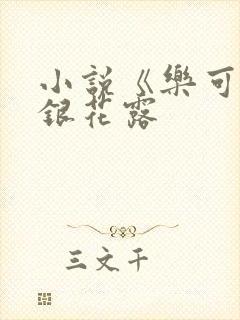 小説《樂可
銀花露
三文千